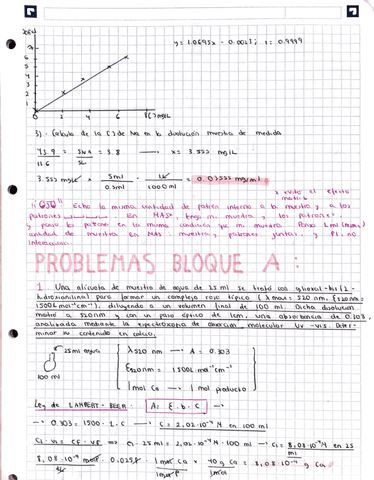 y = 1.0695x - 0.0021; r = 0.9999
7
6
5
4
3
2
1
0 2 4 6 8 [ ] mg/L
3) - Calculo de la [ ] de Na en la disolución muestra de medida
= 3.8 → x = 3.555 mg/L
11.6
3.555 mg/L × 5ml / 0.5ml · 1L / 1000ml = 0.03555 mg/ml
× evito el efecto
matriz
"OJO" Echo la misma cantidad de patrón interno a la muestra y a los
patrones. En MAS, tengo m. muestra, y los patrones.
y pongo los patrones en la misma cantidad de m. muestra. Pongo 1ml (mismo)
cantidad de muestra en MAS: muestra, patrones juntos, y PI, no
interacción.
PROBLEMAS BLOQUE A:
1. Una alícuota de muestra de agua de 25 ml se trató con glioxal-bis(2-
hidroxianilina) para formar un complejo rojo típico (λmax = 520 nm, ξ520nm =
1500 L mol⁻¹cm⁻¹), diluyendo a un volumen final de 100 ml. Dicha disolución
mostró a 520nm y con un paso óptico de 1cm, una absorbancia de 0.303,
analizada mediante la espectroscopia de absorción molecular UV-vis. Deter-
minar su contenido en calcio.
25ml agua
100 ml
λ520 nm → A = 0.303
ξ520nm → 1500 L mol⁻¹cm⁻¹
1 mol Ca → 1 mol producto
Ley de LAMBERT-BEER: A = ξ·b·c →
→ 0.303 = 1500·1·C → C = 2,02·10⁻⁴ M en 100 ml
Ci·Vi = Cf·Vf ⇒ Ci·25ml = 2,02·10⁻⁴ M·100 ml → Ci = 8,08·10⁻⁴ M en 25
ml
8,08·10⁻⁴ mol/L · 0.025L · 1 mol Ca / 1 mol P × 40g Ca / 1 mol = 8,08·10⁻⁴ g Ca